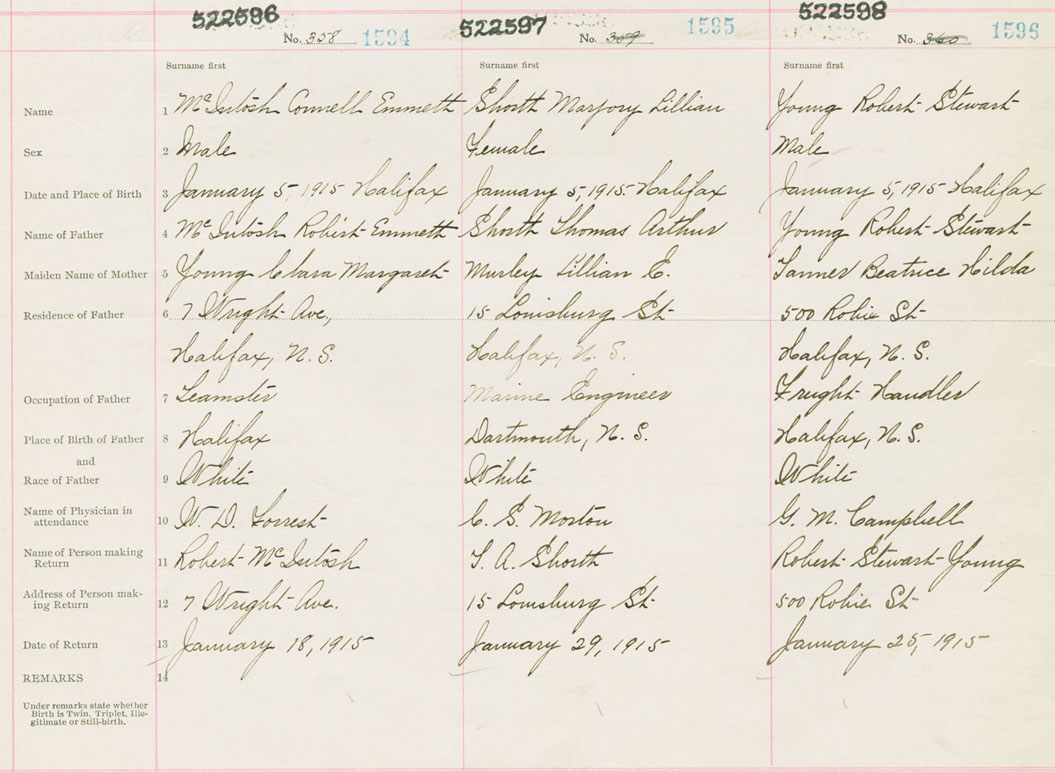 522596 522597 522598
No. 358 1594 No. 359 1595 No. 360 1596
Surname first Surname first Surname first
Name 1 McIntosh Connell Emmett Shorth Marjory Lillian Young Robert Stewart
Sex 2 Male Female Male
Date and Place of Birth 3 January 5, 1915 Halifax January 5, 1915 Halifax January 5, 1915 Halifax
Name of Father 4 McIntosh Robert Emmett Shorth Thomas Arthur Young Robert Stewart
Maiden Name of Mother 5 Young Clara Margaret Murley Lillian E. Tanner Beatrice Hilda
Residence of Father 6 7 Wright Ave, 15 Louisburg St 500 Robie St
Halifax, N. S. Halifax, N. S. Halifax, N. S.
Occupation of Father 7 Teamster Marine Engineer Frught Handler
Place of Birth of Father 8 Halifax Dartmouth, N. S. Halifax, N. S.
and
Race of Father 9 White White White
Name of Physician in
attendance 10 W. D. Forrest C. S. Morton G. M. Campbell
Name of Person making
Return 11 Robert McIntosh T. A. Shorth Robert Stewart Young
Address of Person mak-
ing Return 12 7 Wright Ave. 15 Louisburg St 500 Robie St
Date of Return 13 January 18, 1915 January 29, 1915 January 25, 1915
REMARKS 14
Under remarks state whether
Birth is Twin, Triplet, Ille-
gitimate or Still-birth.